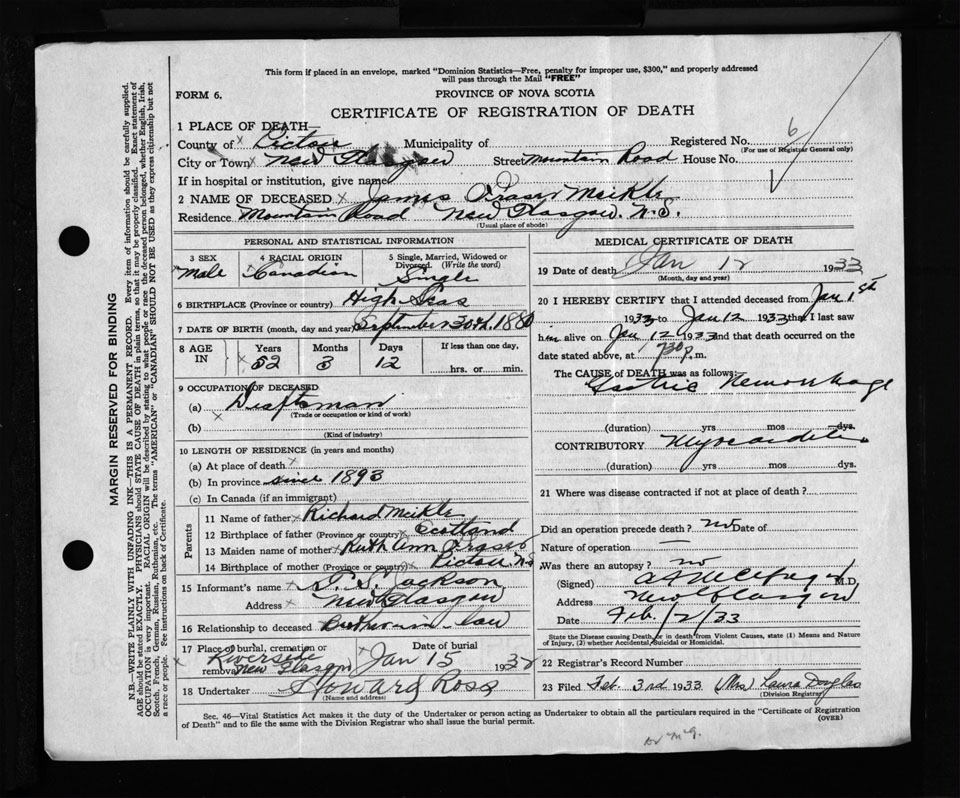 This form if placed in an envelope, marked "Dominion Statistics—Free, penalty for improper use, $300," and properly addressed
will pass through the Mail "FREE"
FORM 6.
PROVINCE OF NOVA SCOTIA
CERTIFICATE OF REGISTRATION OF DEATH
1 PLACE OF DEATH—
County of Pictou Municipality of Registered No. 6
(For use of Registrar General only)
City or Town New Glasgow Street Mountain Road House No.
If in hospital or institution, give name
2 NAME OF DECEASED James Fraser Meikle
Residence Mountain Road New Glasgow. N.S.
(Usual place of abode)
PERSONAL AND STATISTICAL INFORMATION
3 SEX 4 RACIAL ORIGIN 5 Single, Married, Widowed or
Divorced. (Write the word)
Male Canadian Single
6 BIRTHPLACE (Province or country) High Seas
7 DATE OF BIRTH (month, day and year) September 30th 1880
8 AGE IN Years Months Days If less than one day,
52 3 12 hrs. or min.
9 OCCUPATION OF DECEASED
(a) Draftsman
(Trade or occupation or kind of work)
(b)
(Kind of industry)
10 LENGTH OF RESIDENCE (in years and months)
(a) At place of death
(b) In province since 1893
(c) In Canada (if an immigrant)
Parents
11 Name of father Richard Meikle
12 Birthplace of father (Province or country) Scotland
13 Maiden name of mother Ruth Ann Fraser
14 Birthplace of mother (Province or country) Pictou N.S.
15 Informant's name S. Jackson
Address New Glasgow
16 Relationship to deceased Brother in law
17 Place of burial, cremation or removal Date of burial
Riverside
New Glasgow Jan 15 193
18 Undertaker Howard Ross
(Name and address)
MEDICAL CERTIFICATE OF DEATH
19 Date of death Jan 12 1933
(Month, day and year)
20 I HEREBY CERTIFY that I attended deceased from Jan 1st
1933 to Jan 12 1933 that I last saw
him alive on Jan 12 1933 and that death occurred on the
date stated above, at 730 p. m.
The CAUSE of DEATH was as follows:
Gastric Hemorrhage
(duration) yrs mos dys.
CONTRIBUTORY
(duration) yrs mos dys.
21 Where was disease contracted if not at place of death?
Did an operation precede death? no Date of
Nature of operation —
Was there an autopsy? no
(Signed) M.D.
Address New Glasgow
Date Feb /2/33
State the Disease causing Death, or in death from Violent Causes, state (1) Means and Nature
of Injury, (2) whether Accidental, Suicidal or Homicidal.
22 Registrar's Record Number
23 Filed Feb. 3rd 1933 (Mrs) Laura Douglas
(Division Registry)
Sec. 46—Vital Statistics Act makes it the duty of the Undertaker or person acting as Undertaker to obtain all the particulars required in the "Certificate of Registration
of Death" and to file the same with the Division Registrar who shall issue the burial permit.
(OVER)
MARGIN RESERVED FOR BINDING
N.B.—WRITE PLAINLY WITH UNFADING INK—THIS IS A PERMANENT RECORD. Every item of information should be carefully supplied.
AGE should be stated EXACTLY. PHYSICIANS should STATE CAUSE OF DEATH in plain terms, so that it may be properly classified. Exact statement of
OCCUPATION is very important. RACIAL ORIGIN will be described by stating to what people or race the deceased person belonged, whether English, Irish,
Scotch, French, German, Russian, Ruthenian, etc. The terms "AMERICAN" or "CANADIAN" SHOULD NOT BE USED as they express citizenship but not
a race or people. See instructions on back of Certificate.